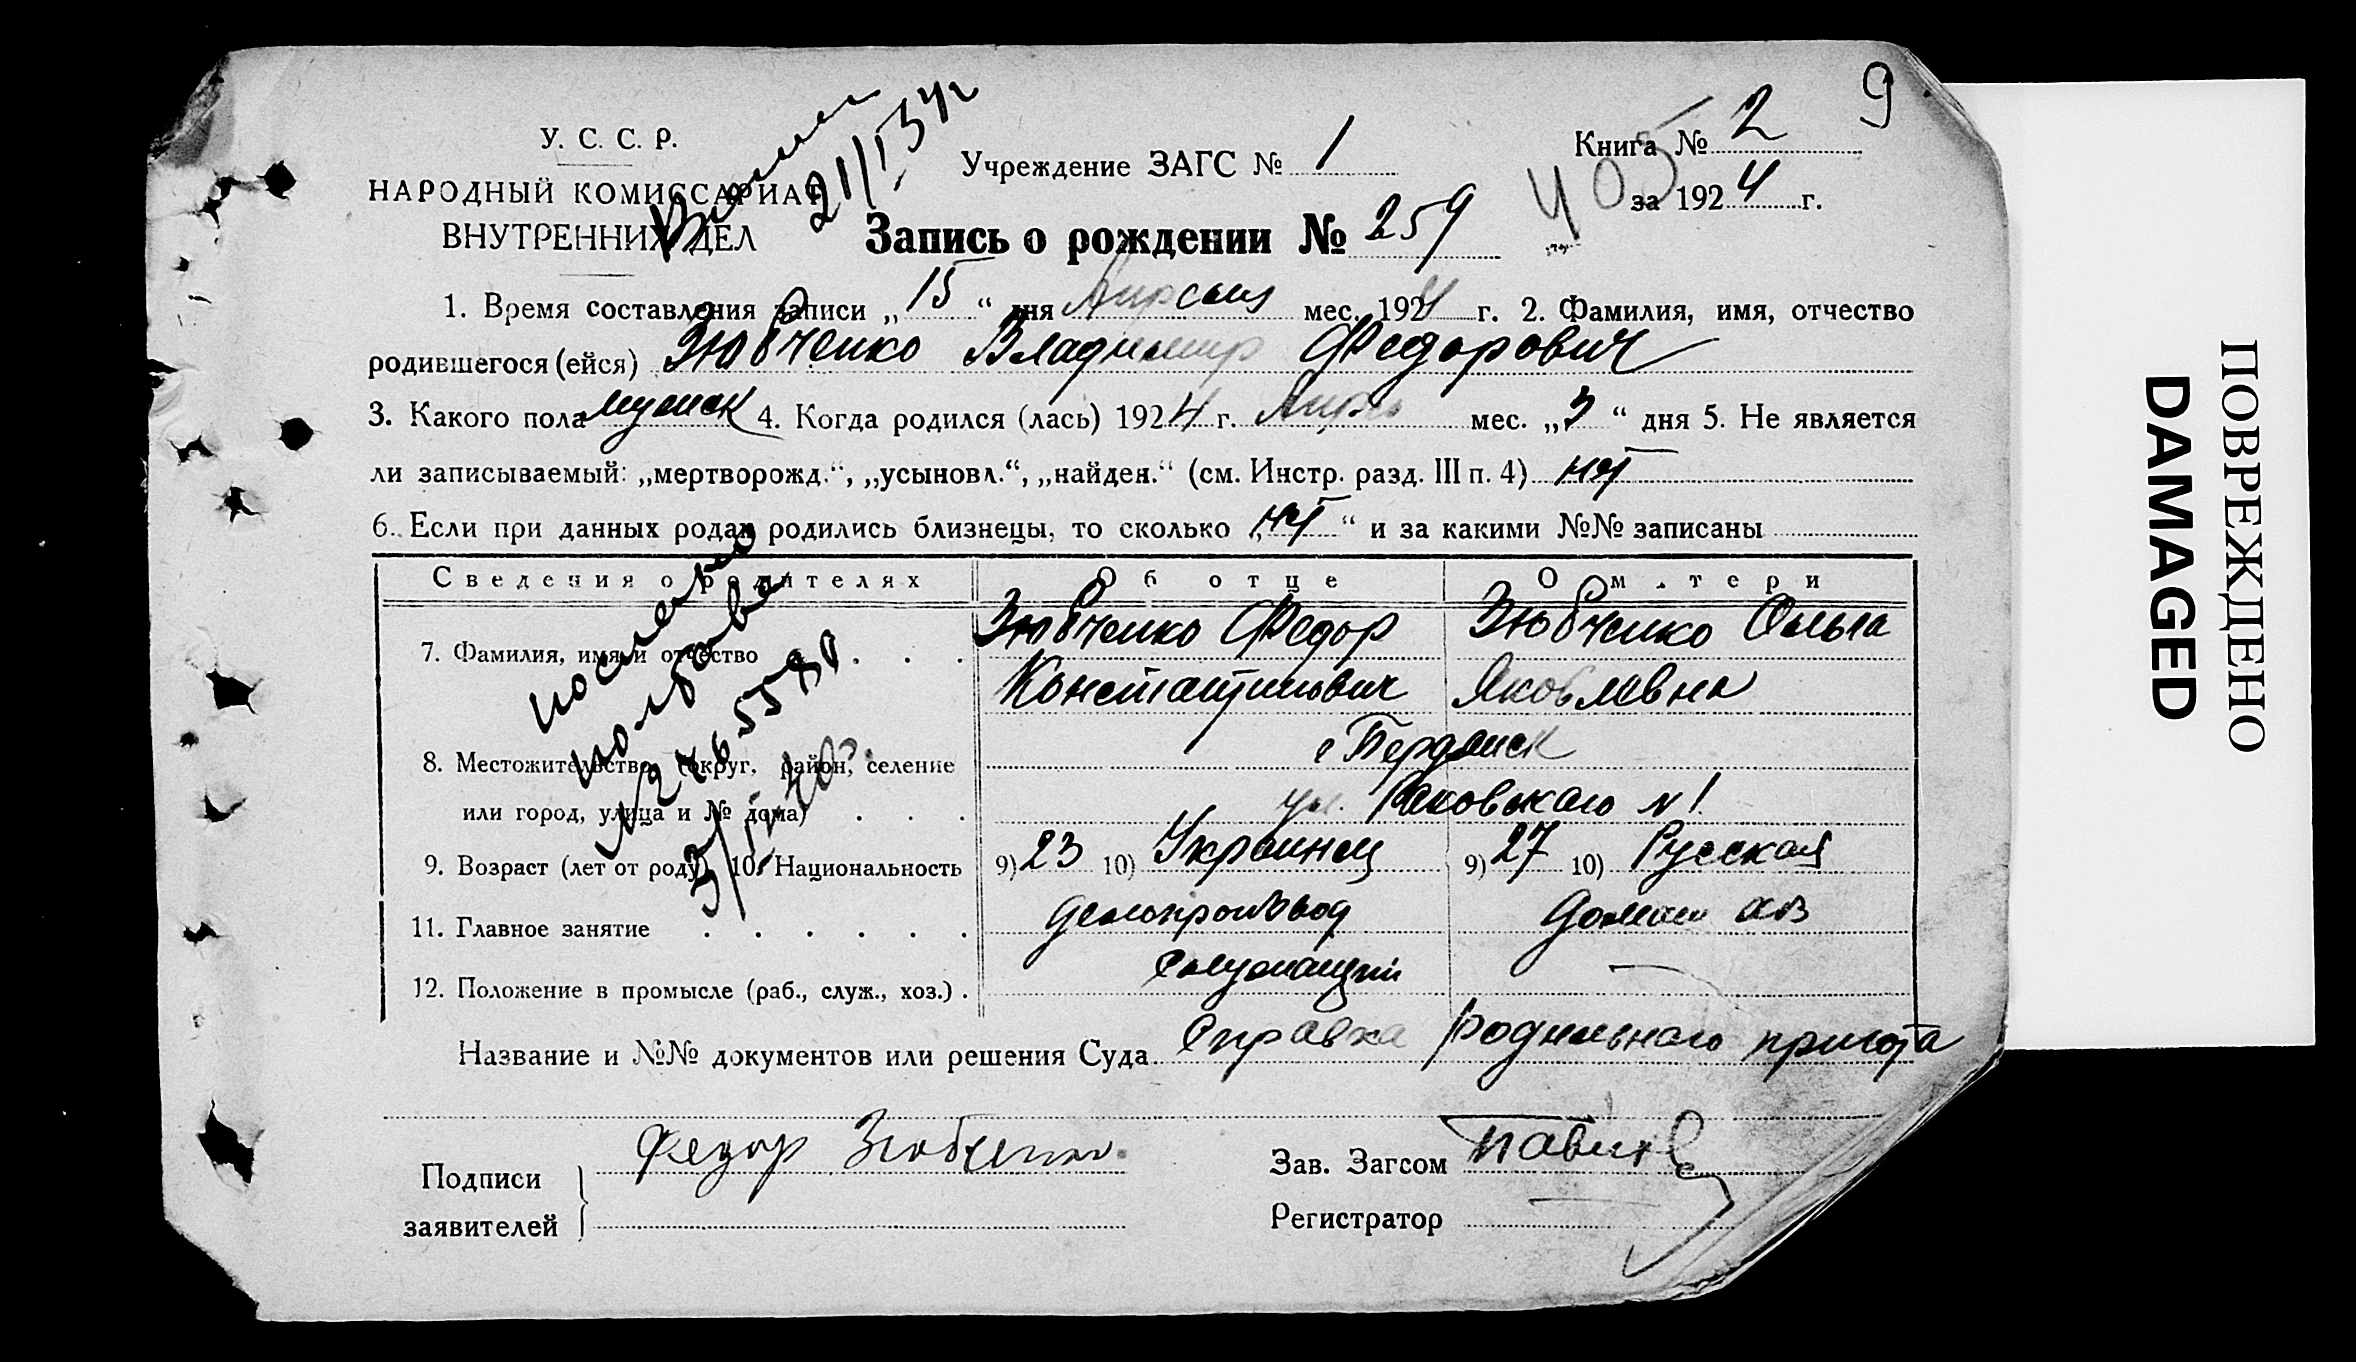 9
У. С. С. Р.
НАРОДНЫЙ КОМИССАРИАТ
ВНУТРЕННИХ ДЕЛ
21/I 34
Учреждение ЗАГС № 1
Книга № 2
405
за 1924 г.
Запись о рождении № 259
1. Время составления записи „15“ дня Апреля мес. 1924 г. 2. Фамилия, имя, отчество
родившегося (ейся) Зюбченко Владимир Федорович
3. Какого пола мужск 4. Когда родился (лась) 1924 г. Апрль мес. „3“ дня 5. Не является
ли записываемый: „мертворожд.“, „усыновл.“, „найден.“ (см. Инстр. разд. III п. 4) нет
6. Если при данных родах родились близнецы, то сколько „нет“ и за какими №№ записаны
Сведения о родителях Об отце О матери
7. Фамилия, имя и отчество Зюбченко Федор Зюбченко Ольга
Константинович Яковлевна
8. Местожительство (округ, район, селение г Бердянск
или город, улица и № дома) ул. Раковского № 1
9. Возраст (лет от роду) 10. Национальность 9) 23 10) Украинец 9) 27 10) Русская
11. Главное занятие делопроизвод домаш хоз
12. Положение в промысле (раб., служ., хоз.) служащий —
Название и №№ документов или решения Суда Справка родильного приюта
Подписи Федор Зюбченко
заявителей
Зав. Загсом
Регистратор
ПОВРЕЖДЕНО
DAMAGED